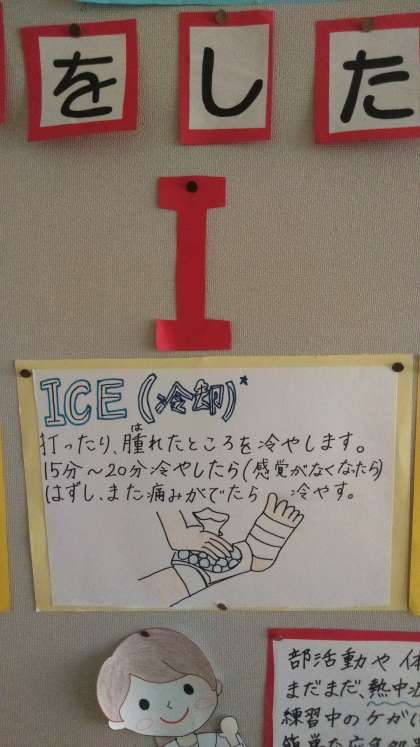 をした
I
ICE (冷却)*
打ったり、腫れたところを冷やします。
は
15分～20分冷やしたら(感覚がなくなったら)
はずし、また痛みがでたら 冷やす。
部活動や体
まだまだ、熱中
練習中のケガに